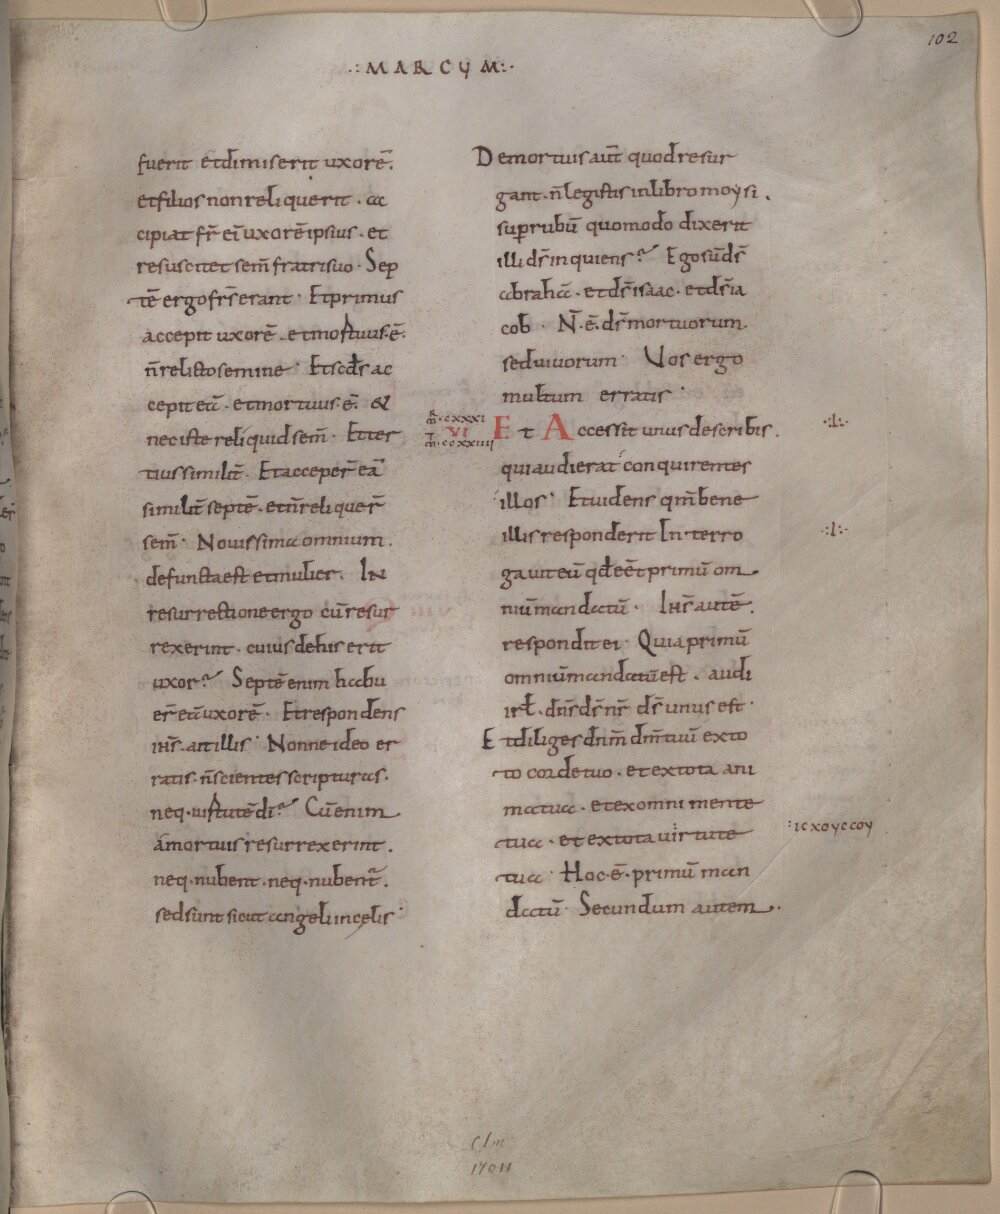 102
.:MARCUM:.
fuerit et dimiserit uxorē.
et filios non reliquerit. ac
cipiat fr̄ ei᷒ uxorē ipsius. et
resuscitet sem̄ fratri suo. Sep
tē ergo fr̄s erant. Et primus
accepit uxorē. et mortuus. ē.
n̄ relicto semine. Et scd̄s ac
cepit eā. et mortuus. ē. &
nec iste reliquid sem̄. Et ter
tius similit̄. Et acceper̄ eā
similit̄ septē. et n̄ reliquer̄
sem̄. Nouissima omnium.
defuncta est et mulier. IN
resurrectione ergo cū resur
rexerint. cuius de his erit
uxor? Septē enim habu
er̄ eā uxorē. Et respondens
ihs̄. ait illis. Nonne ideo er
ratis. n̄ scientes scripturas.
neq. uirtutē dī? Cū enim
a mortuis resurrexerint.
neq. nubent. neq. nubent̄.
sed sunt sicut angeli in cęlis.
De mortuis aut̄ quod resur
gant. n̄ legistis in libro moysi.
sup rubū quomodo dixerit
illi ds̄ inquiens? Ego sū ds̄
abrahā. et ds̄ isaac. et ds̄ ia
cob. N̄. ē. ds̄ mortuorum.
sed uiuorum. Vos ergo
multum erratis.
R̄ m̄. cxxxi
VI
m̄. ccxxiiii
Et Accessit unus de scribis.
qui audierat conquirentes
illos. Et uidens qm̄ bene
illis responderit Interro
gauit eū qd̄ eēt primū om
nium mandatū. Ihs̄ autē.
respondit ei. Quia primū
omniū mandatū est. audi
irl̄. dns̄ ds̄ nr̄ ds̄ unus est.
Et diliges dnm̄ dm̄ tuū ex to
to corde tuo. et ex tota ani
ma tua. et ex omni mente
tua. et ex tota uirtute
tua. Hoc. ē. primū man
datū. Secundum autem.
.:l:.
.:l:.
:ιcxογccογ
Clm
17011